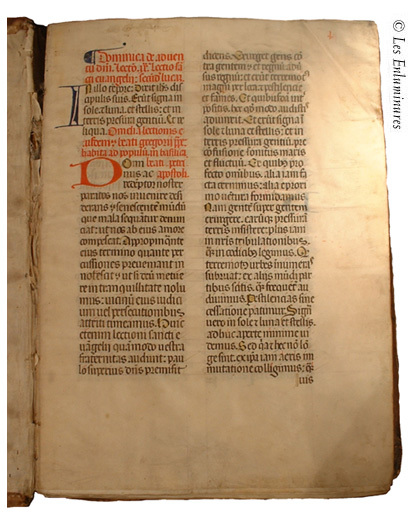 Dominica de adven
tu dni. lectio sci
evangelii. secund lucam.
In illo tempore: Dixit ihs di
scipulis suis. Erunt signa in
sole et luna. et stellis: et in
terris pressura gentium. Et re
liqua. Omelia lectionis e
iusdem. beati gregorii
habita ad populum in basilica
Dom beati petri
inus ac apostoli.
redemptor noster
paratos nos invenire desi
derans. et senescente mundu
que mala sequantur denun
ciat: ut nos ab eius amore
compescat. Appropinquante
eius terminu quante per
cussiones preveniant in
notescit. et si deum metue
re in tranquillitate nolu
mus: vicinum eius iudici
um vel percussionibus
attriti timeamus. Huic
etenim lectioni sancti e
vangelii qua modo vestra
fraternitas audivit: pau
lo superius dns premisit
dicens. Exurget gens co
tra gentem. et regnu adv
sus regnum: et erunt terremotus
magni per loca. et pestilencie
et fames. Et quibusdam int
iectis hoc quod modo audistis
adiunxit. Erunt signa in
sole et luna. et stellis: et in
terris pressura gentium: pre
confusione sonitus maris
et fluctuum. Ex quibus pro
fecto omnibus. alia iam fa
cta cernimus: alia e proxi
mo ventura formidamus.
Nam gentem super gentem
exurgere. earumque pressuram
terris insistere: plus iam
in nostris tribulationibus
quam in codicibus legimus. Qd
terremotus urbes innumeras
subruat: ex aliis mundi par
tibus scitis. quam frequenter au
divimus. Pestilencias sine
cessatione patimur. Signa
vero in sole et luna et stellis.
adhuc aperte minime vi
demus. Sed quia et hec non lon
ge sint. ex ipsa iam aeris im
mutatione colligimus: qm
vis
© Les Enluminures